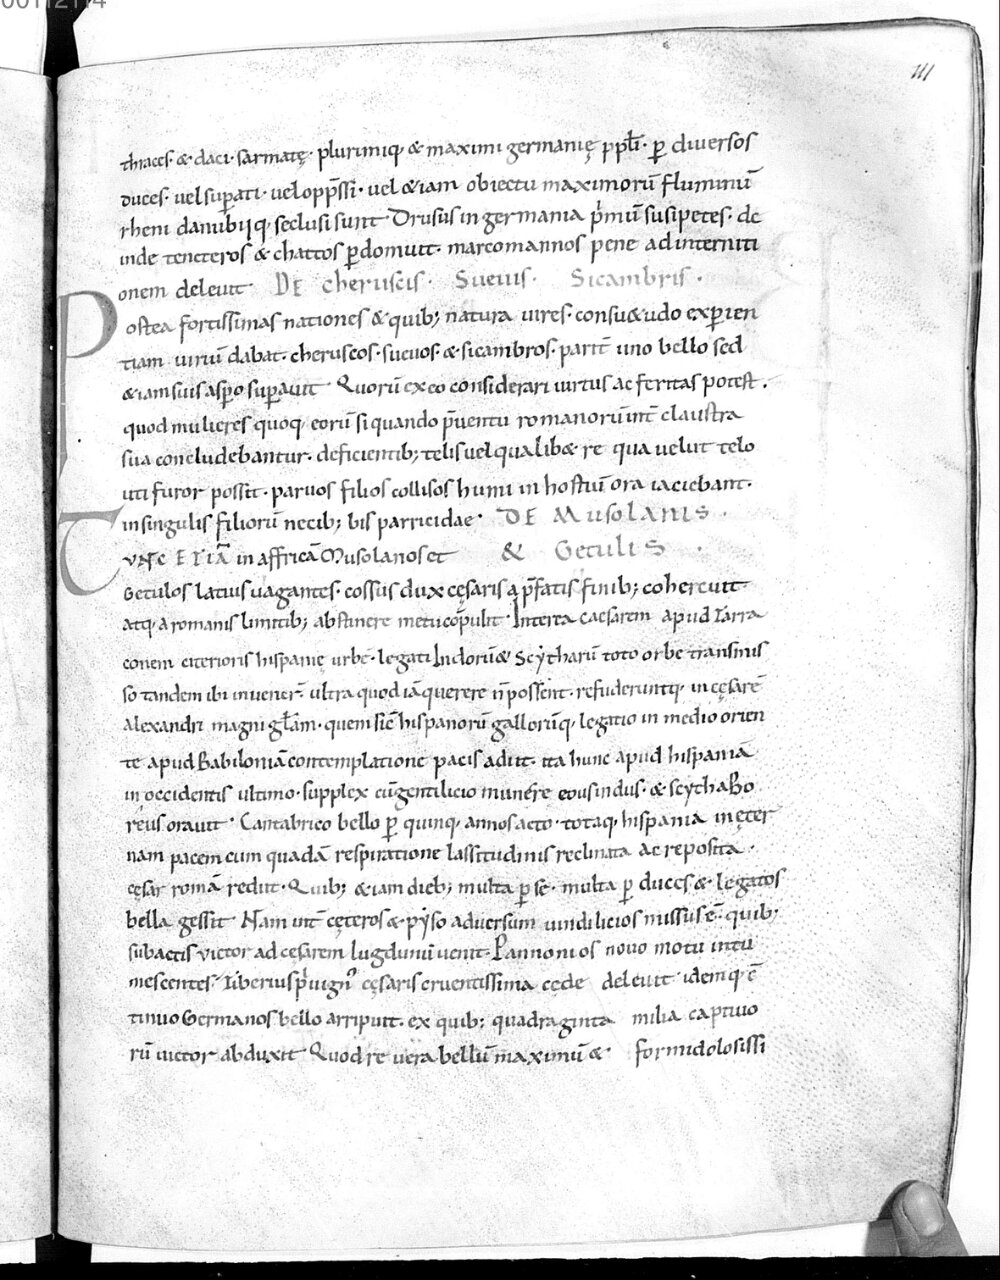 00112114
111
thraces· & daci· sarmatę· plurimiq; & maximi germanię ppl̄i· ꝑ diuersos
duces· uel suꝑati· uel opp̄ssi· uel & iam obiectu maximorū fluminū
rheni danubiiq; seclusi sunt· Drusus in germania p̄mū susipetes· de
inde tencteros & chattos ꝑdomuit· marcomannos pene ad interniti
onem deleuit DE cheruscis· Sueuis· Sicambris·
Postea fortissimas nationes & quib; natura uires· consu&udo exꝑien
tiam uirium dabat· cheruscos· sueuos· & sicambros· parit̄ uno bello sed
& iam suis asꝑo suꝑauit Quorū ex eo considerari uirtus ac feritas potest·
quod mulieres quoq; eorū si quando p̄uentu romanorū int̄ claustra
sua concludebantur· deficientib; telis uel qualib& re qua uelut telo
uti furor possit· paruos filios collisos humi in hostiū ora iaciebant·
in singulis filiorū necib; bis parricidae· DE Musolanis·
Tunc ETIĀ in affricā Musolanos et & Getulis·
Getulos latius uagantes· cossus dux cęsaris a p̄fatis finib; cohercuit·
atq; a romanis limitib; abstinere metu cōpulit· Interea caesarem apud Tarra
conem citerioris hispanię urbē· legati Indorū & Scytharū toto orbe transmis
so tandem ibi inuener̄ ultra quod iā querere n̄ possent· refuderuntq; in cęsarē
alexandri magni gl̄am· quem sic̄ hispanorū gallorūq; legatio in medio orien
te apud Babiloniā contemplatione pacis adiit· ita hunc apud hispaniā
in occidentis ultimo· supplex cū gentilicio munere eous indus· & scytha Bo
reus orauit· Cantabrico bello ꝑ quinq; annos acto· totaq; hispania in ęter
nam pacem cum quadā respiratione lassitudinis reclinata ac reposita·
cęsar romā rediit· Quib; & iam dieb; multa ꝑ se· multa ꝑ duces & legatos
bella gessit Nam int̄ cęteros & pyso aduersum uindilicios missus ē· quib;
subactis uictor ad cęsarem lugdunū uenit· Pannonios nouo motu intu
mescentes· Tiberius p̄uign⁹ cęsaris cruentissima cede deleuit idemq; c̄
tinuo Germanos bello arripuit· ex quib; quadraginta milia captiuo
rū uictor abduxit Quod re uera bellū maximū & formidolosissi